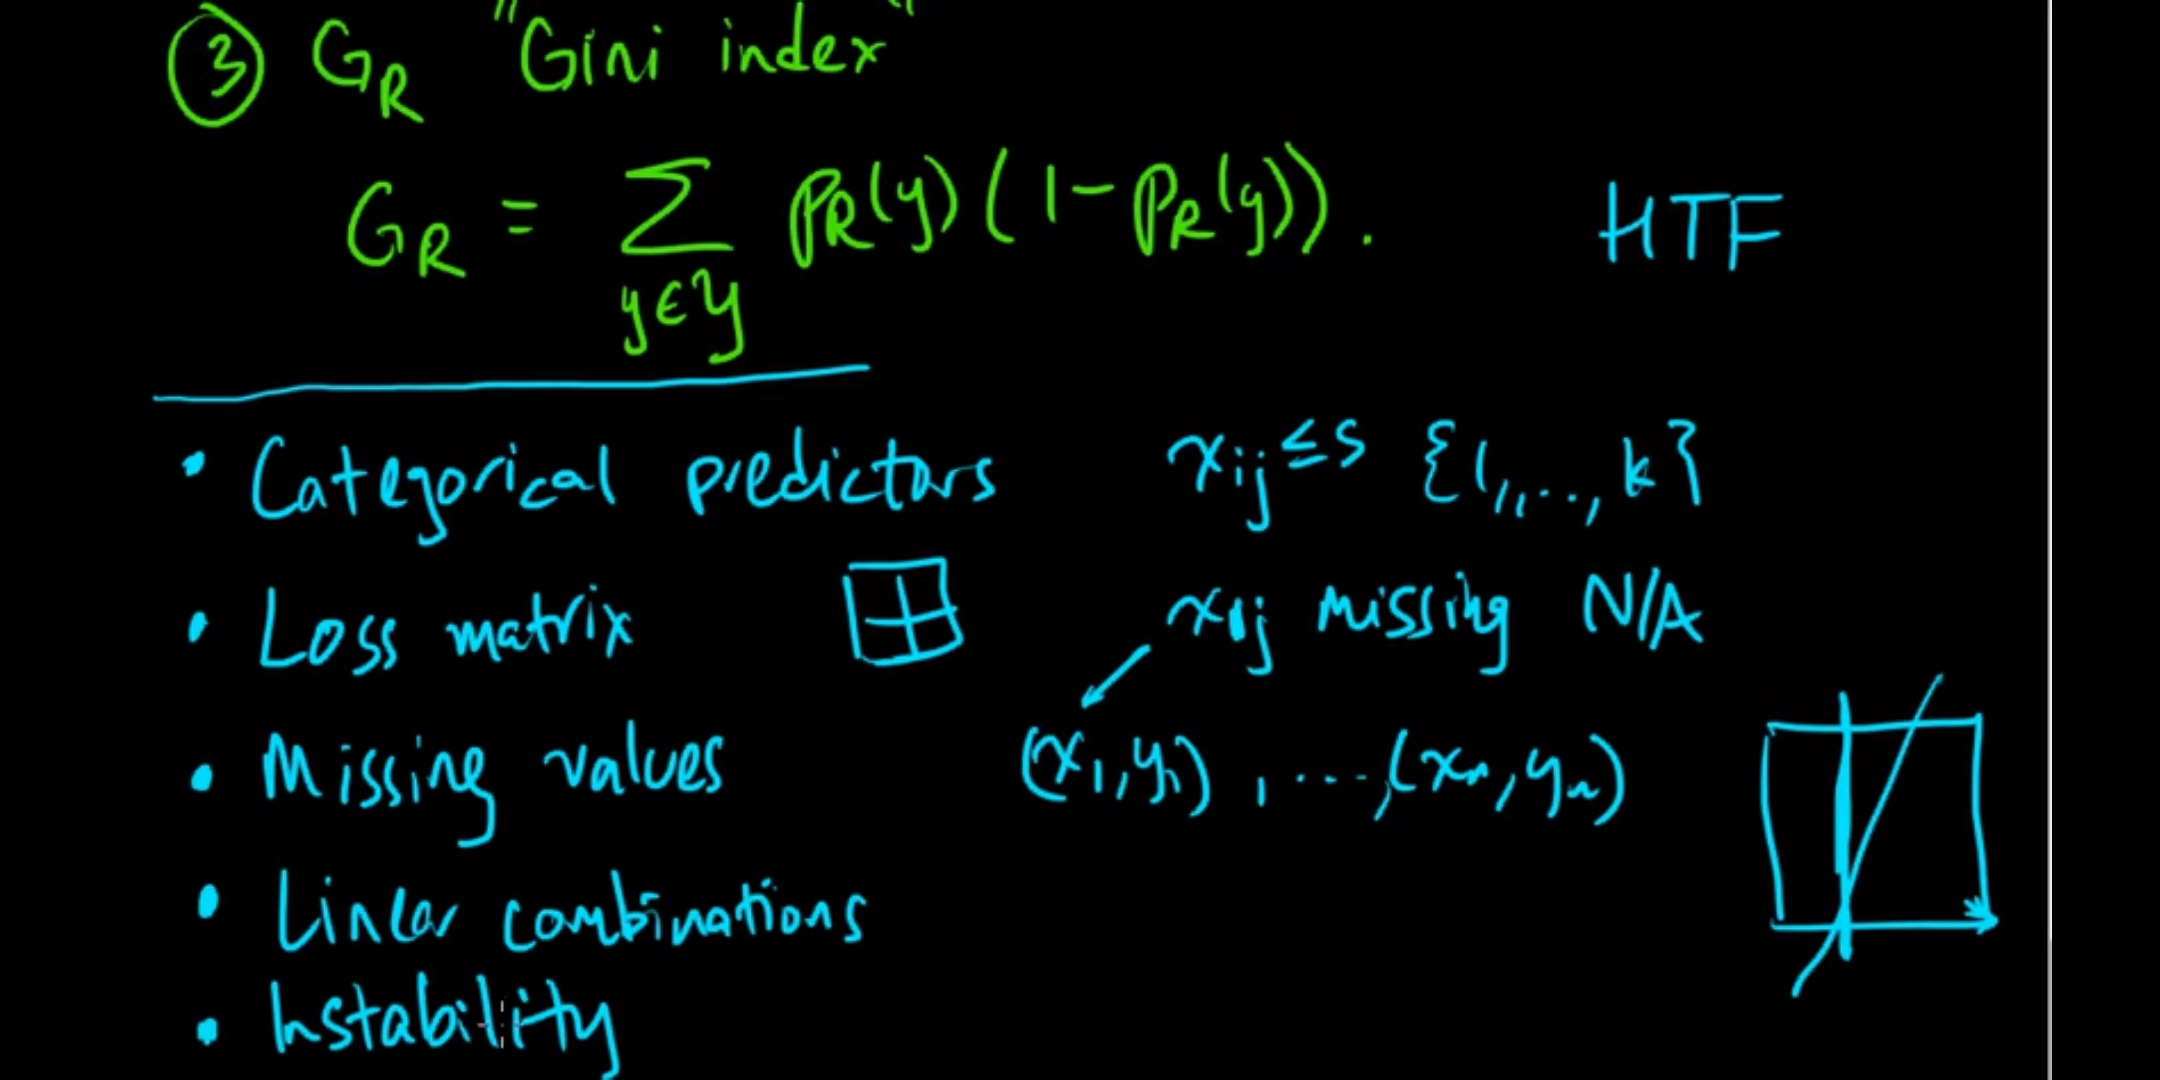 ③ G_R "Gini index"
G_R = ∑_{y∈𝒴} p_R(y)(1-p_R(y)).
HTF
• Categorical predictors x_ij ≤ s {1,,...,k}
• Loss matrix x_1j missing N/A
• Missing values (x_1,y_1),...,(x_n,y_n)
• Linear combinations
• Instability